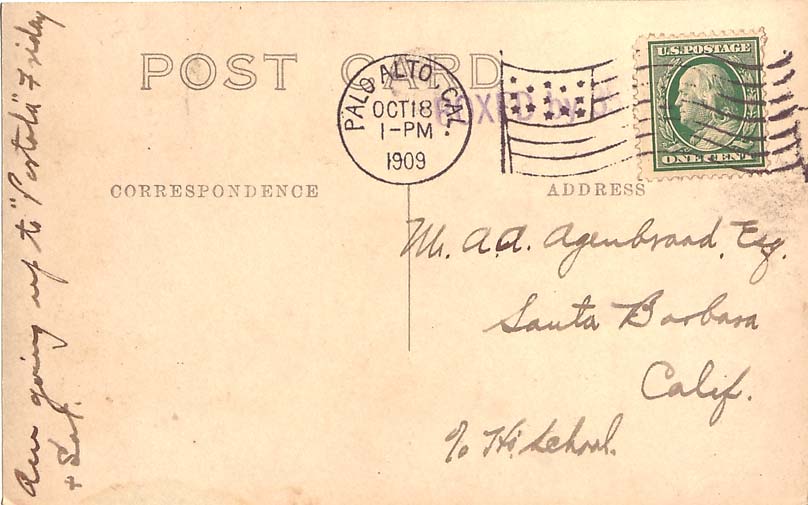 POST CARD
PALO ALTO, CAL.
OCT 18
1-PM
1909
BOXED by
U.S. POSTAGE
ONE CENT
CORRESPONDENCE
ADDRESS
Mr. A.A. Agenbroad, Esq.
Santa Barbara
Calif.
c/o Hi. School.
Am going up to "Portola" Friday
+ Sat.